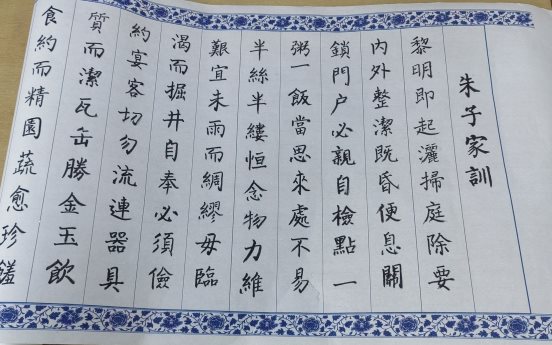 朱子家訓
黎明即起灑掃庭除要
內外整潔既昏便息關
鎖門户必親自檢點一
粥一飯當思來處不易
半絲半縷恒念物力維
艱宜未雨而綢繆毋臨
渴而掘井自奉必須儉
約宴客切勿流連器具
質而潔瓦缶勝金玉飲
食約而精園蔬愈珍饈